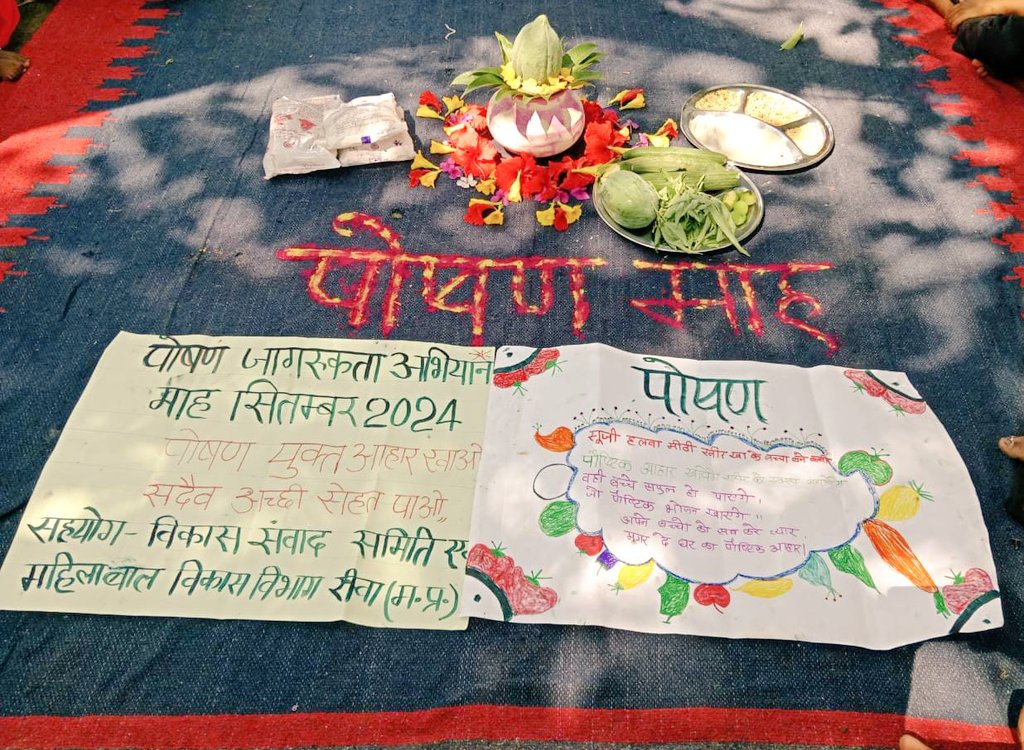 पोषण माह
पोषण जागरुकता अभियान
माह सितम्बर 2024
पोषण युक्त आहार खाओ
सदैव अच्छी सेहत पाओ,,
सहयोग - विकास संवाद समिति एवं
महिला बाल विकास विभाग रीवा (म.प्र.)
पोषण
सूजी हलवा मीठी खीर खा के बच्चा
पौष्टिक आहार
वही बच्चे सफल हो पाएंगे।
जो पौष्टिक भोजन खाएंगे॥
अपने बच्चों को सब करे प्यार
मगर दे घर का पौष्टिक आहार।